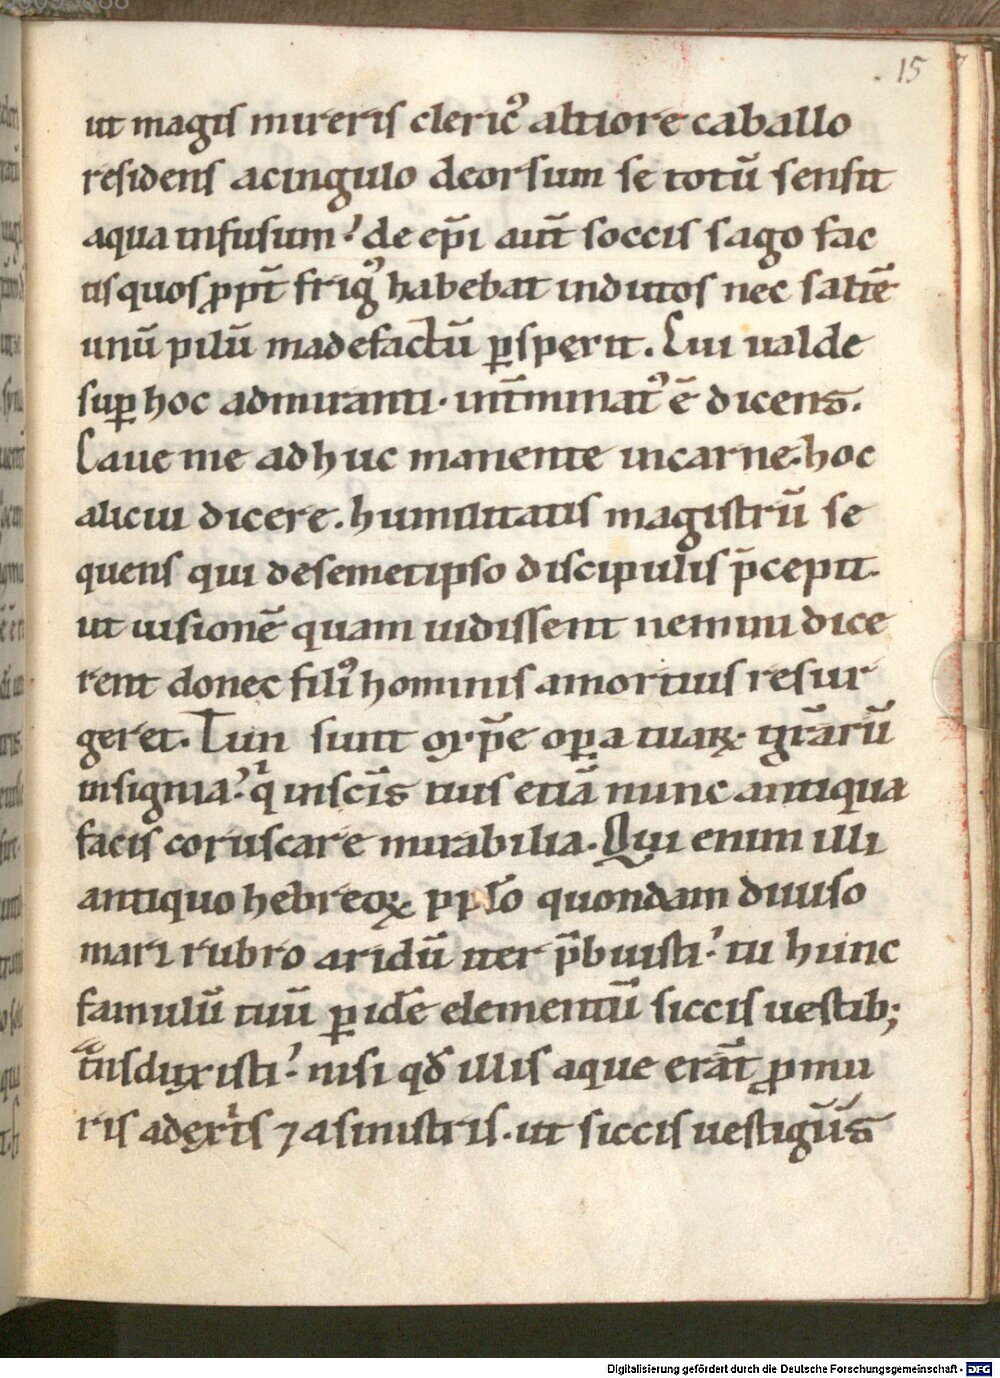 15
ut magis mireris cleric᷒ altiore caballo
residens acingulo deorsum se totū sensit
aqua infusum. de ep̄i aut̄ soccis sago fac
tis quos ꝓpt̄ frig᷒ habebat indutos nec saltē
unū pilū madefactū ꝑsperit. Cui ualde
suꝑ hoc admiranti. int̄minat᷒ ē dicens.
Caue me adhuc manente incarne. hoc
alicui dicere. humilitatis magistrū se
quens qui desemetipso discipulis p̄cepit.
ut uisionē quam uidissent nemini dice
rent donec fili᷒ hominis amortuis resur
geret. Tua sunt xp̄e oꝑa tuaꝝ gr̄arū
insignia. qͥ insc̄is tuis etiā nunc antiqua
facis coruscare mirabilia. Qui enim illi
antiquo hebreoꝝ pp̄lo quondam diuiso
mari rubro aridū iter p̄buisti. tu hunc
famulū tuū ꝑ idē elementū siccis uestib;
t̄nsduxisti. nisi qd̄ illis aque erāt ꝓ mu
ris adext̓s ⁊ asinistris. ut siccis uestigiis
Digitalisierung gefördert durch die Deutsche Forschungsgemeinschaft - DFG